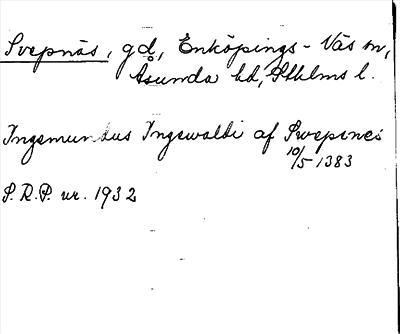 Svepnäs, gd, Enköpings-Näs sn,
Åsunda hd, Sthlms l.
Ingemundus Ingewaldi af Swepenes
10/5 1383
S.R.P. nr. 1932